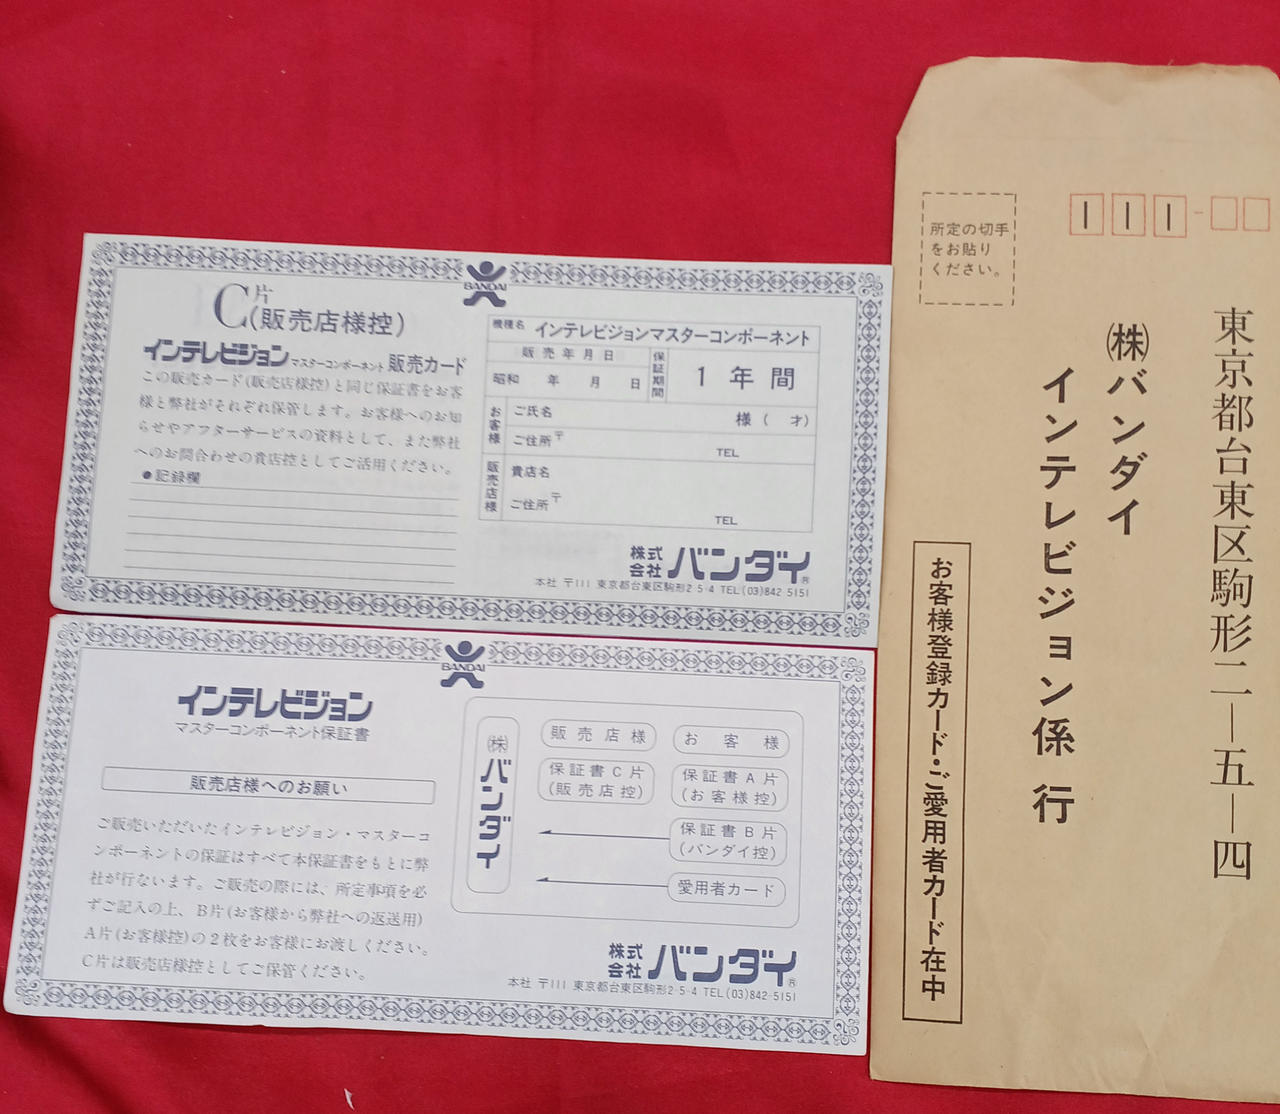 BANDAI
C片
(販売店様控)
インテレビジョン マスターコンポーネント 販売カード
この販売カード(販売店様控)と同じ保証書をお客
様と弊社がそれぞれ保管します。お客様へのお知
らせやアフターサービスの資料として、また弊社
へのお問合わせの貴店控としてご活用ください。
●記録欄
機種名 インテレビジョンマスターコンポーネント
販売年月日
昭和 年 月 日
保証期間
1年間
お客様
ご氏名 様( 才)
ご住所〒
TEL
販売店様
貴店名
ご住所〒
TEL
株式会社 バンダイ®
本社 〒111 東京都台東区駒形2-5-4 TEL(03)842-5151
BANDAI
インテレビジョン
マスターコンポーネント保証書
販売店様へのお願い
ご販売いただいたインテレビジョン・マスターコ
ンポーネントの保証はすべて本保証書をもとに弊
社が行ないます。ご販売の際には、所定事項を必
ずご記入の上、B片(お客様から弊社への返送用)
A片(お客様控)の2枚をお客様にお渡しください。
C片は販売店様控としてご保管ください。
㈱バンダイ
販売店様
お客様
保証書C片
(販売店控)
保証書A片
(お客様控)
保証書B片
(バンダイ控)
愛用者カード
株式会社 バンダイ®
本社 〒111 東京都台東区駒形2-5-4 TEL(03)842-5151
所定の切手
をお貼り
ください。
111-
東京都台東区駒形二―五―四
㈱バンダイ
インテレビジョン係 行
お客様登録カード・ご愛用者カード在中